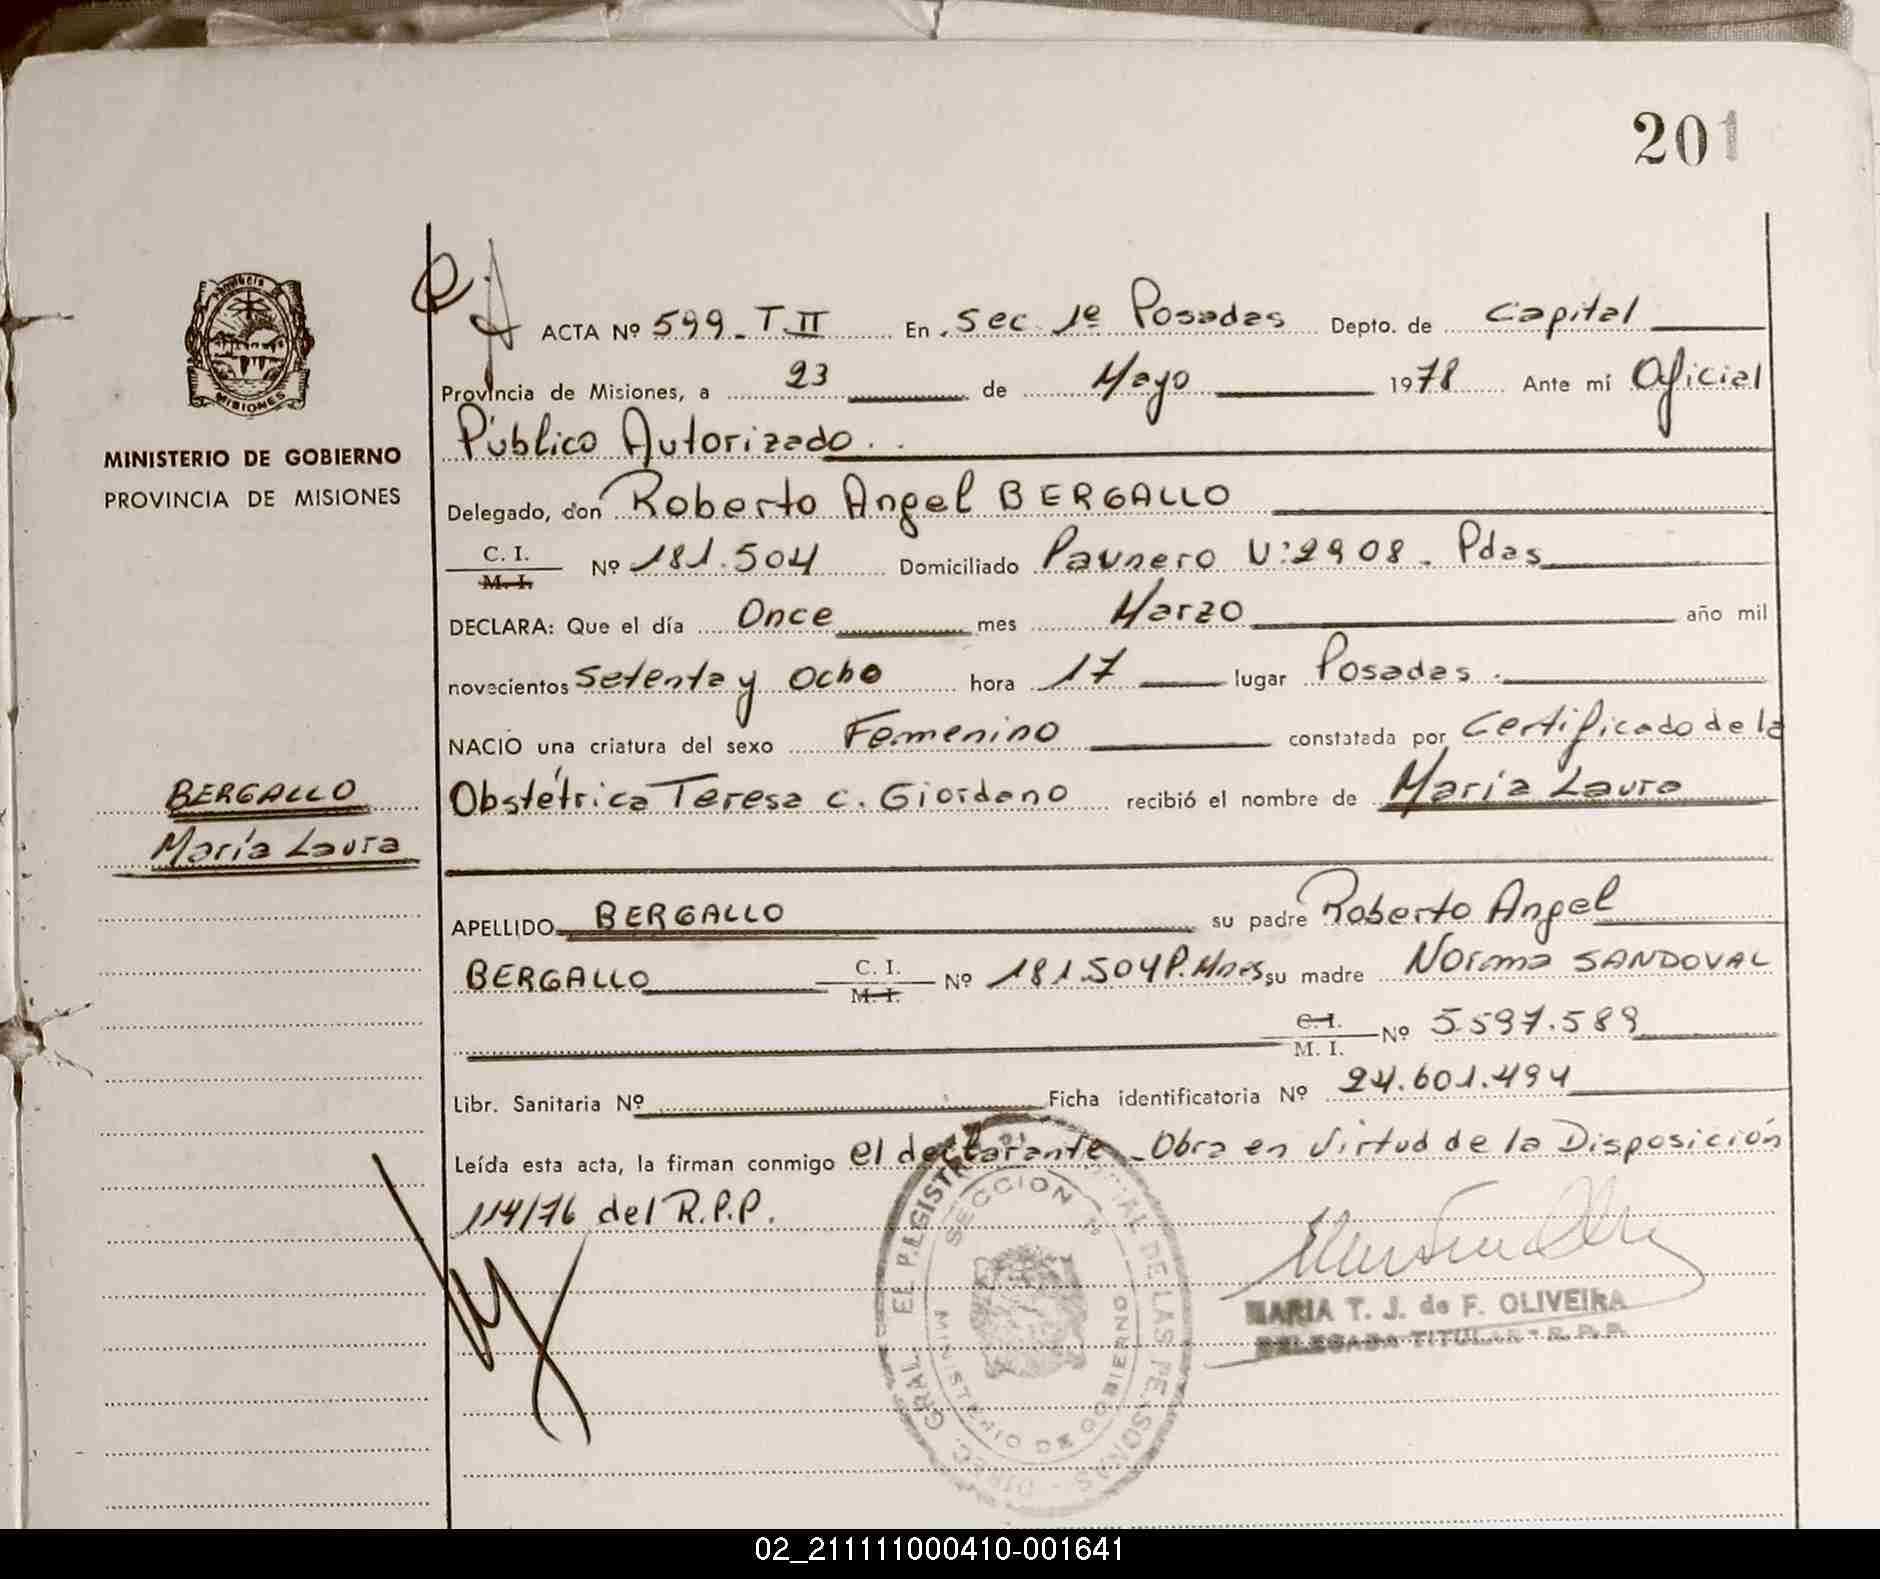 201
ACTA Nº 599 - T. II En Sec. 1ª Posadas Depto. de Capital
Provincia de Misiones, a 23 de Mayo 1978 Ante mí Oficial
Público Autorizado.
MINISTERIO DE GOBIERNO
PROVINCIA DE MISIONES
MISIONES
Delegado, don Roberto Angel BERGALLO
C. I.
M. I. Nº 181.504 Domiciliado Paunero U:2908 - Pdas
DECLARA: Que el día Once mes Marzo año mil
novecientos Setenta y Ocho hora 17 lugar Posadas.
NACIO una criatura del sexo Femenino constatada por Certificado de la
Obstétrica Teresa C. Giordano recibió el nombre de María Laura
BERGALLO
María Laura
APELLIDO BERGALLO su padre Roberto Angel
BERGALLO C. I.
M. I. Nº 181.504 P. Mnes su madre Norma SANDOVAL
C. I.
M. I. Nº 5.597.589
Libr. Sanitaria Nº Ficha identificatoria Nº 24.601.494
Leída esta acta, la firman conmigo el declarante - Obra en Virtud de la Disposición
114/76 del R.P.P.
SECCION Nº
MINISTERIO DE GOBIERNO
MARIA T. J. de F. OLIVEIRA
DELEGADA TITULAR - R. P. P.
02_211111000410-001641